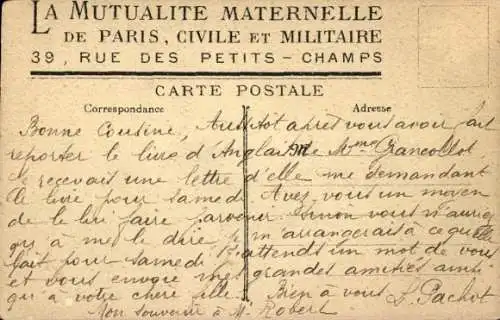 LA MUTUALITE MATERNELLE
DE PARIS, CIVILE ET MILITAIRE
39, RUE DES PETITS-CHAMPS
CARTE POSTALE
Correspondance
Adresse
Bonne Cousine, Aussitôt après vous avoir fait
reporter le livre d'Anglais de Mme
Je recevais une lettre d'elle me demandant
le livre pour samedi. Avez vous un moyen
de le lui faire parvenir sinon vous n'auriez
qu'à me le dire je m'arrangerais à ce qu'elle
l'ait pour samedi. J'attends un mot de vous
et vous envoie mes grandes amitiés ainsi
qu'à votre chère fille. Bien à vous L. Pachot
Mon souvenir à Mr Robert